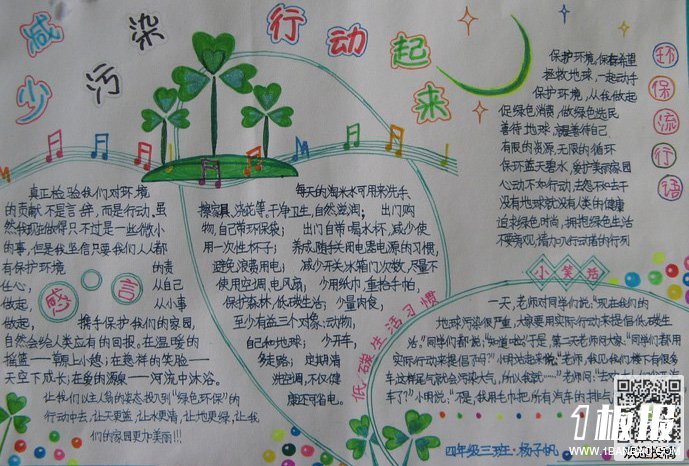 减少污染
行动起来
环保流行语
保护环境,保存希望
拯救地球,一起动手
保护环境,从我做起
促绿色消费,做绿色选民
善待地球,就是善待自己
有限的资源,无限的循环
保环蓝天碧水,爱护美丽家园
心动不如行动
没有地球就没有人类的健康
追求绿色时尚,拥抱绿色生活
真正检验我们对环境
的贡献不是言辞,而是行动,虽
然我现在做得只不过是一些微小
的事,但是我坚信只要我们人人都
有保护环境的责
任心,从自己
做起,从小事
做起,携手保护我们的家园,
自然会给人类立有的回报,在温暖的
摇篮——草原上小憩;在慈祥的笑脸——
天空下成长;在爱的源泉——河流中沐浴。
让我们以主人翁的姿态投入到“绿色环保”的
行动中去,让天更蓝,让水更清,让地更绿,让我
们的家园更加美丽!!!
感言
每天的淘米水可用来洗手、
擦家具、浇花等,干净卫生,自然滋润;出门购
物,自己带环保袋;出门自带喝水杯,减少使
用一次性杯子;养成随手关闭电器电源的习惯,
避免浪费用电;减少开关冰箱门次数,尽量不
使用空调,电风扇;少用纸巾,重拾手帕,
保护森林,低碳生活;少量肉食,
至少有益三个对像:动物,
自己和地球;少开车,
多走路;定期清
洗空调,不仅健
康还可省电。
低碳生活习惯
小笑话
一天,老师对同学们说:“现在我们的
地球污染很严重,大家要用实际行动来提倡低碳生
活。”同学们都说:“知道啦”于是,第二天老师问大家:“同学们都用
实际行动来提倡了吗?”小明站起来说:“老师,我见我们楼下有很多
车这样尾气就会污染大气,所以我就……”老师问:
车了?”小明说:“不是,我用毛巾把所有汽车的排气
四年级三班·杨子帆
1板报
WWW.1BANBAO.COM